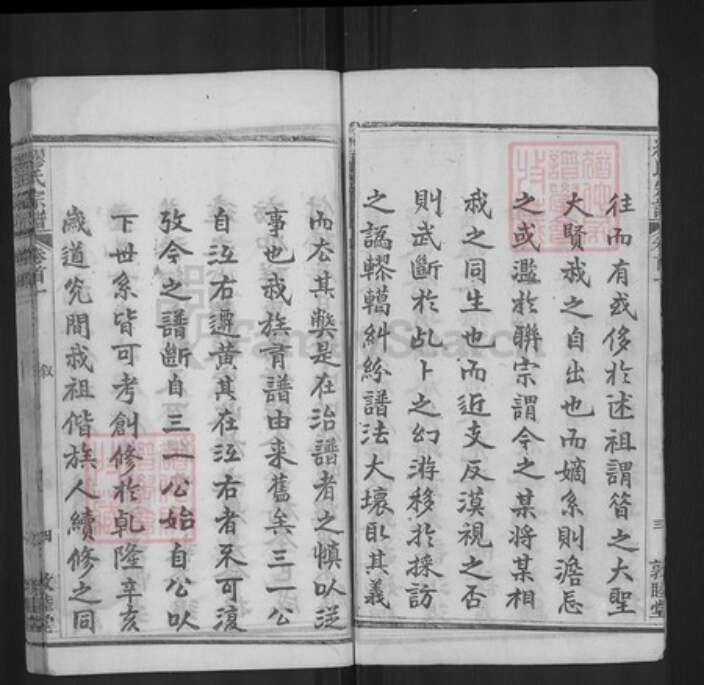 往而有或侈於述祖謂昔之大聖
大賢我之自出也而嫡系則澹忘
之或濫於聯宗謂今之某將某相
我之同生也而近支反漠視之否
則武斷於乩卜之幻游移於採訪
之譌轇轕糾紛譜法大壞取其義
而太其獘是在治譜者之慎以從
事也我族有譜由來舊矣三一公
自江右遷黃其在江右者不可復
攷今之譜斷自三一公始自公以
下世系皆可考創修於乾隆辛亥
歲道光間我祖偕族人續修之同
氏宗譜
卷首一
叙
四
三
敦睦堂
FamilySearch